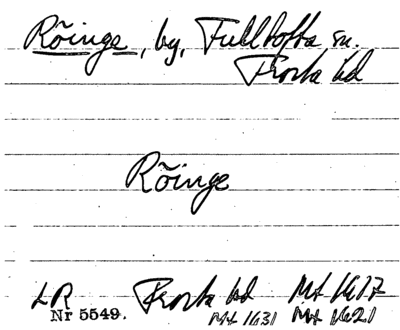 Röinge, by, Fulltofta sn.
Frosta hd
Röinge
LR Frosta hd Mt 1617
Nr 5549. Mt 1631 Mt 1621